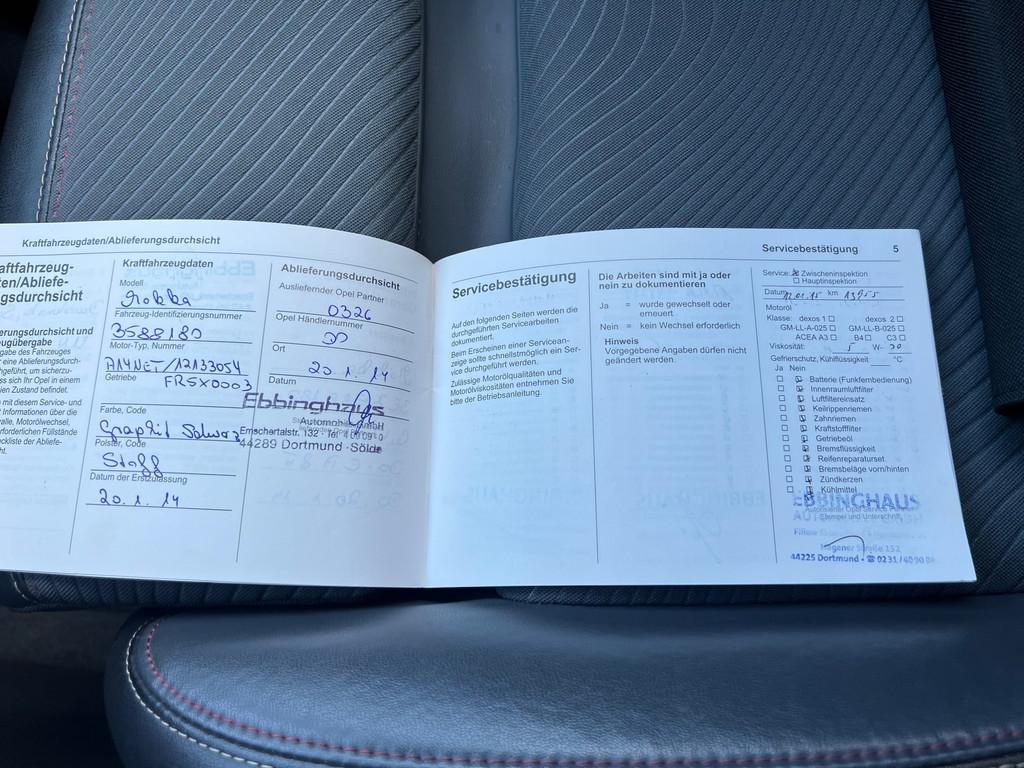 Kraftfahrzeugdaten/Ablieferungsdurchsicht
aftfahrzeug-
ten/Abliefe-
gsdurchsicht
erungsdurchsicht und
eugübergabe
gabe des Fahrzeuges
r eine Ablieferungsdurch-
geführt, um sicherzu-
ss sich Ihr Opel in einem
ien Zustand befindet.
n mit diesem Service- und
t Informationen über die
valle, Motorölwechsel,
erforderlichen Füllstände
ckliste der Abliefe-
ht.
Kraftfahrzeugdaten
Modell
Mokka
Fahrzeug-Identifizierungsnummer
3588180
Motor-Typ, Nummer
A14NET/12133054
Getriebe FR5X0003
Farbe, Code
Graphit Schwarz
Polster, Code
Stoff
Datum der Erstzulassung
20.1.14
Ablieferungsdurchsicht
Ausliefernder Opel Partner
0326
Opel Händlernummer
Ort
20.1.14
Datum
Ebbinghaus
Automobile GmbH
Emschertalstr. 132
44289 Dortmund - Sölde
Servicebestätigung 5
Servicebestätigung
Auf den folgenden Seiten werden die
durchgeführten Servicearbeiten
dokumentiert.
Beim Erscheinen einer Servicean-
zeige sollte schnellstmöglich ein Ser-
vice durchgeführt werden.
Zulässige Motorölqualitäten und
Motorölviskositäten entnehmen Sie
bitte der Betriebsanleitung.
Die Arbeiten sind mit ja oder
nein zu dokumentieren
Ja = wurde gewechselt oder
erneuert
Nein = kein Wechsel erforderlich
Hinweis
Vorgegebene Angaben dürfen nicht
geändert werden.
Service: Zwischeninspektion
Hauptinspektion
Datum km 13955
Motoröl
Klasse: dexos 1 dexos 2
GM-LL-A-025 GM-LL-B-025
ACEA A3 B4 C3
Viskosität: 5 W- 30
Gefrierschutz, Kühlflüssigkeit °C
Ja Nein
Batterie (Funkfernbedienung)
Innenraumluftfilter
Luftfiltereinsatz
Keilrippenriemen
Zahnriemen
Kraftstofffilter
Getriebeöl
Bremsflüssigkeit
Reifenreparaturset
Bremsbeläge vorn/hinten
Zündkerzen
Kühlmittel
EBBINGHAUS
Autorisierter Opel Service Partner
Stempel und Unterschrift
Hagener Straße 152
44225 Dortmund · ☎ 0231/